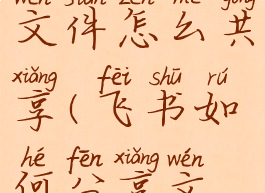 wén jiàn zěn me gòng
文件怎么共
xiǎng fēi shū rú
享(飞书如
hé fēn xiǎng wén
何分享文